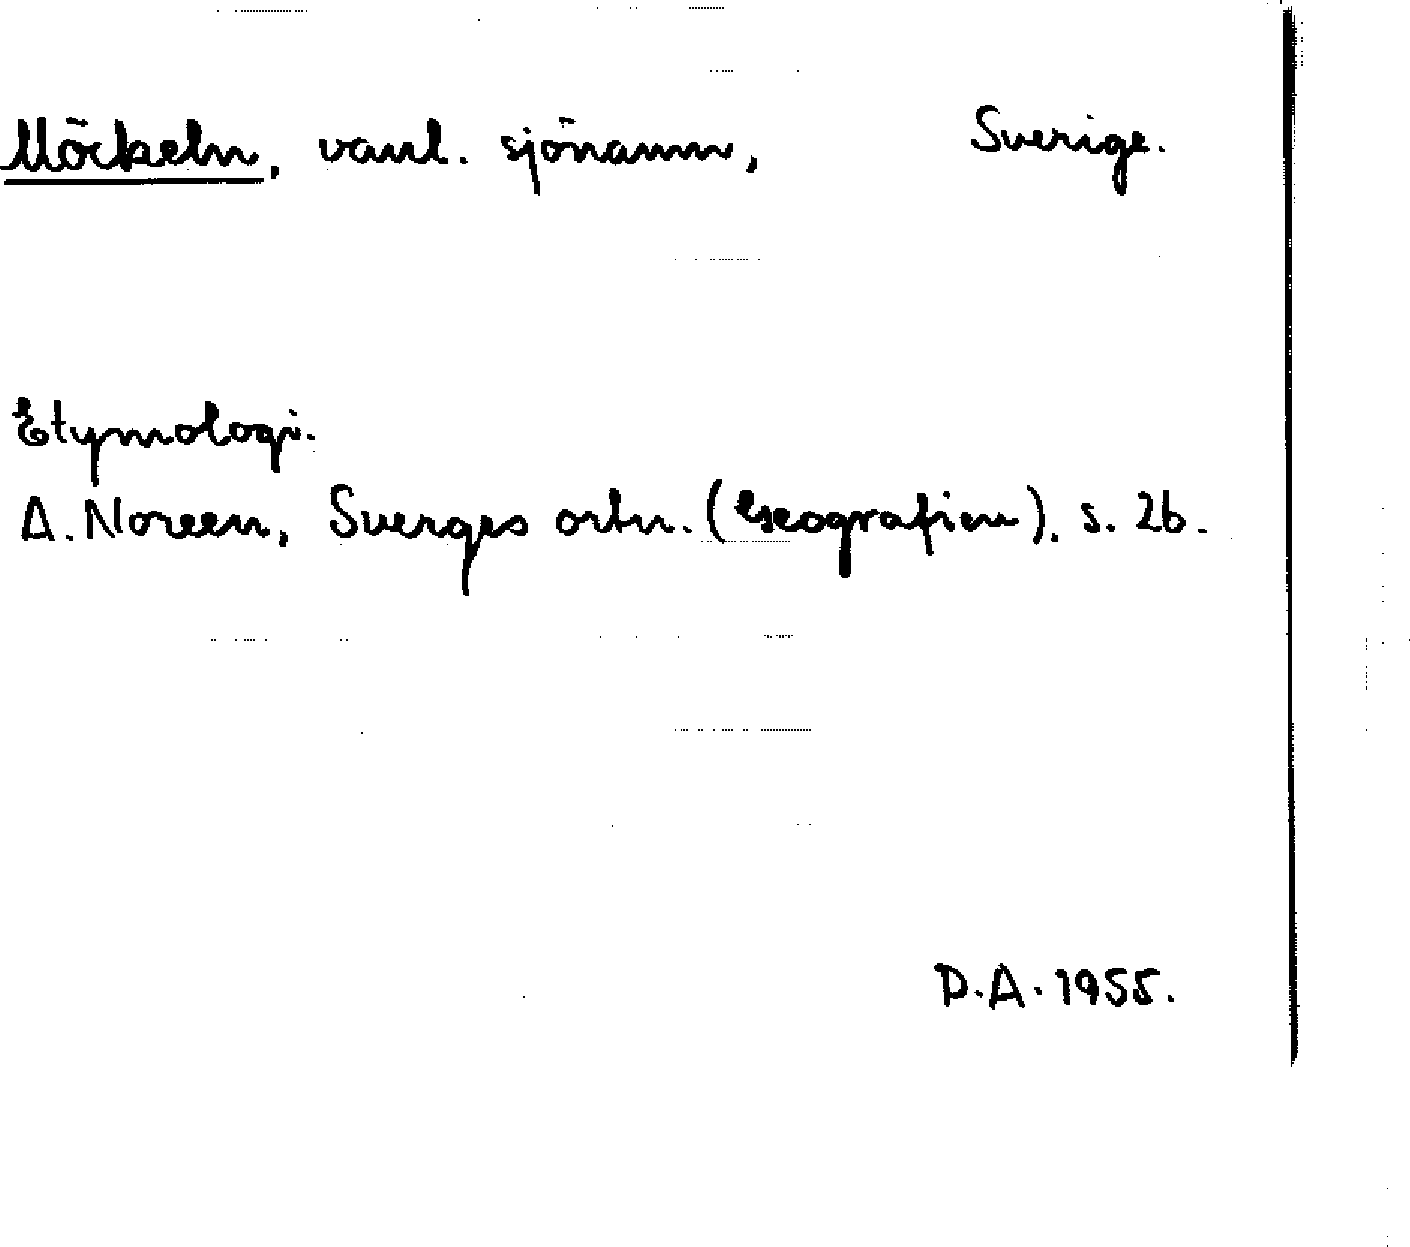 Möckeln, vanl. sjönamn, Sverige.
Etymologi.
A. Noreen, Sverges ortn. (Geografien). s. 26.
D.A. 1955.